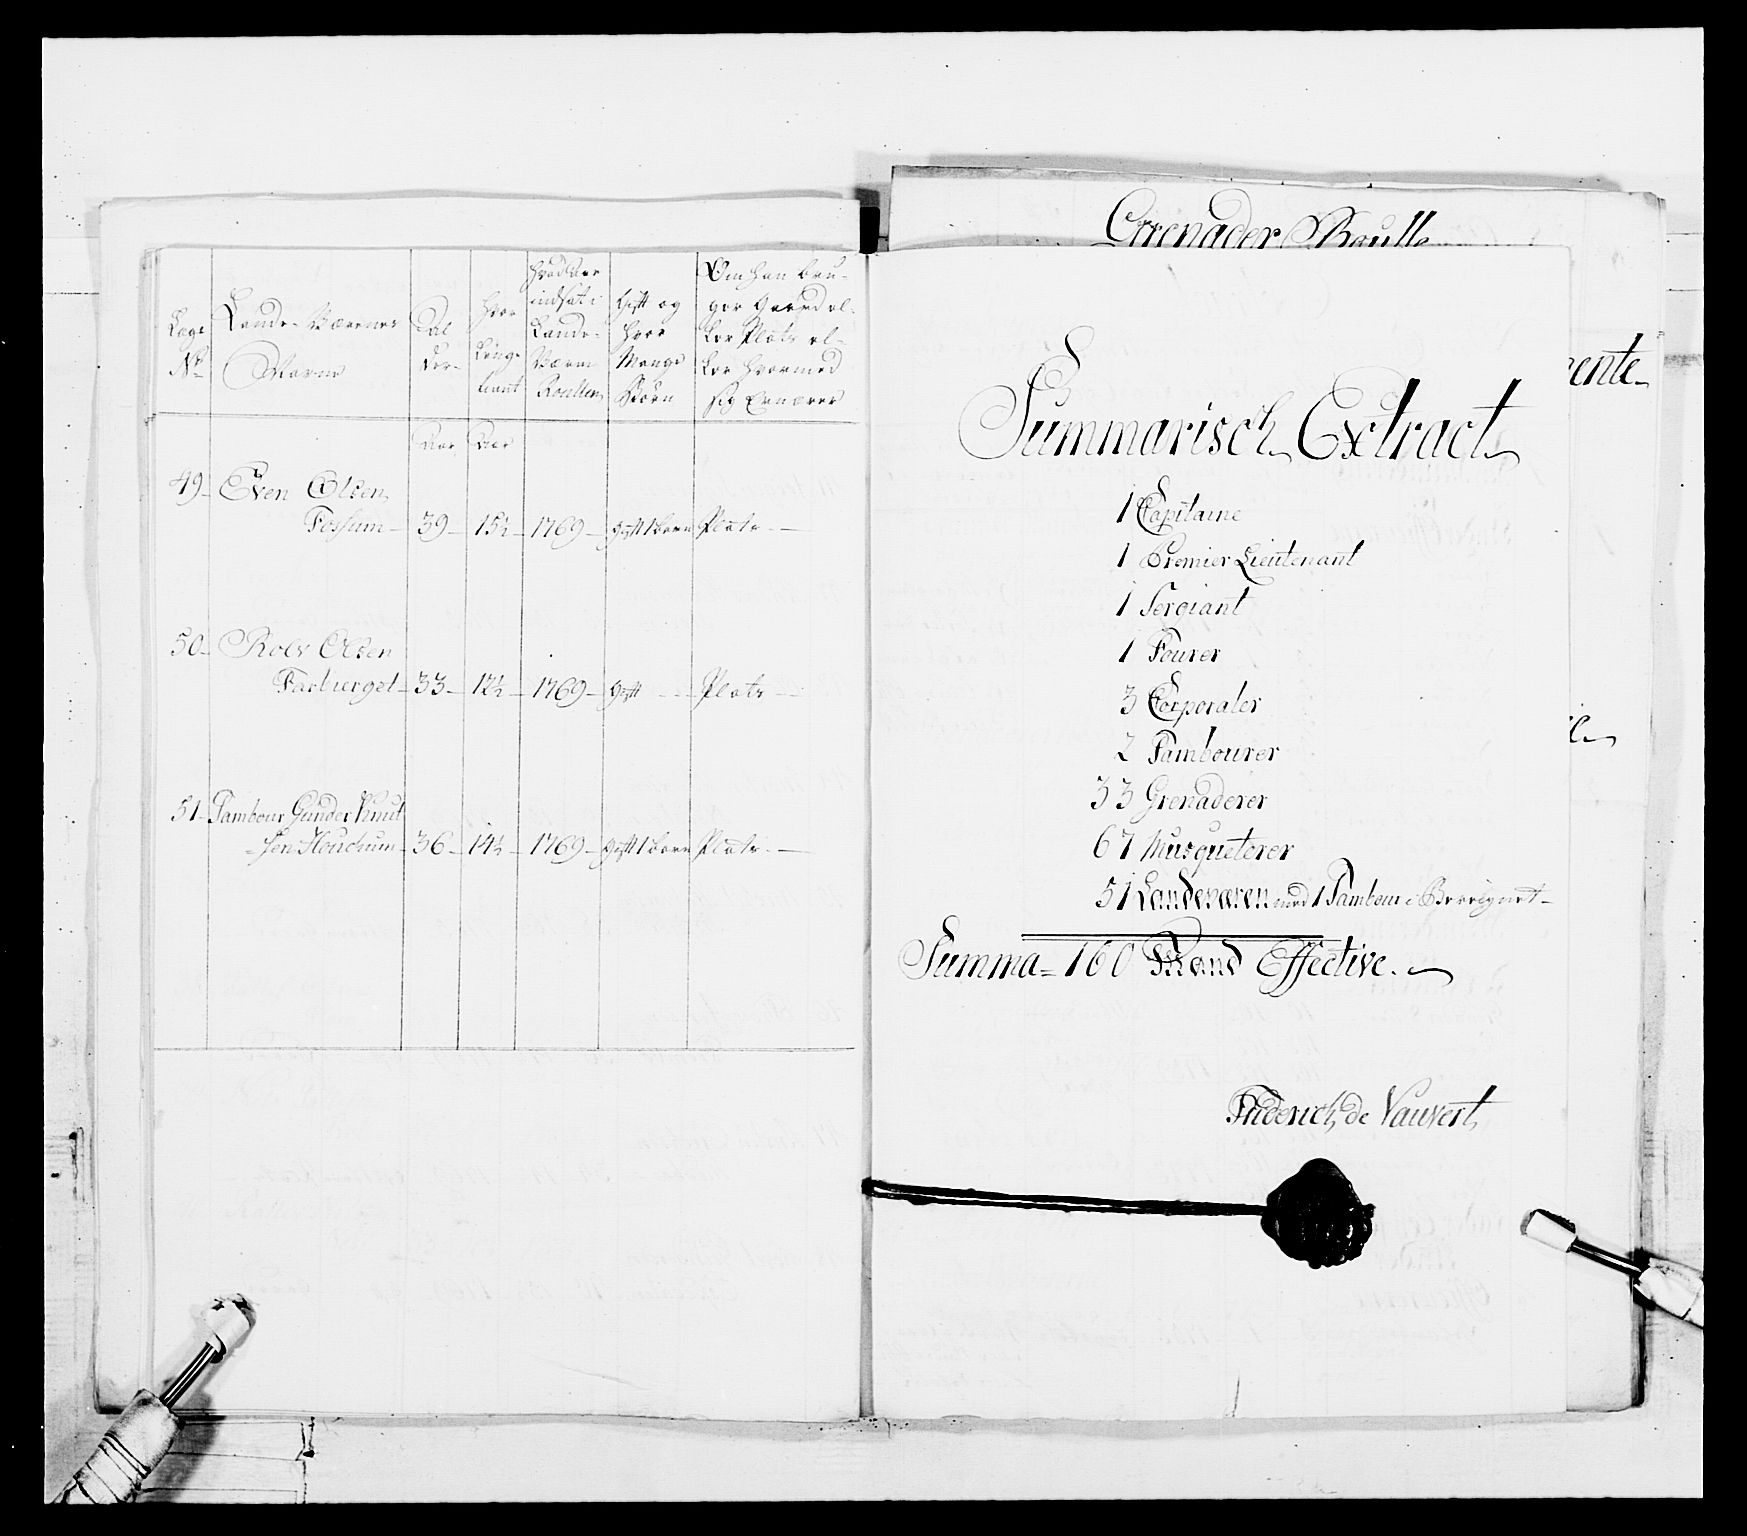 Lægs No
Lande-Værnes Navne
Alder
Hvor Længe tient
Hvad Aar indsat i Lande-Værns Roullen
Gift og hvor Mange Børn
Om han bruger Gaard eller Plats eller hvormed sig Ernærer
Aar Aar
49- Even Olsen
Fossum- 39- 15½- 1769- gift 1 barn Plats-
50- Rolv Olsen
Farbierget- 33- 12½- 1769- gift - Plats-
51- Tambour Gunder Knut
-sen Houchum- 36- 14½- 1769- gift 1 barn Plats-
Grenader Roulle
ente-
Summarisch Extract
1 Capitaine
1 Premier Lieutenant
1 Sergiant
1 Fourer
3 Corporaler
2 Tambourer
33 Grenaderer
67 Musqueterer
51 Landeværen med 1 Tambour i Beregnet-
Summa- 160 Mand Effective.
Friderich de Vauvert